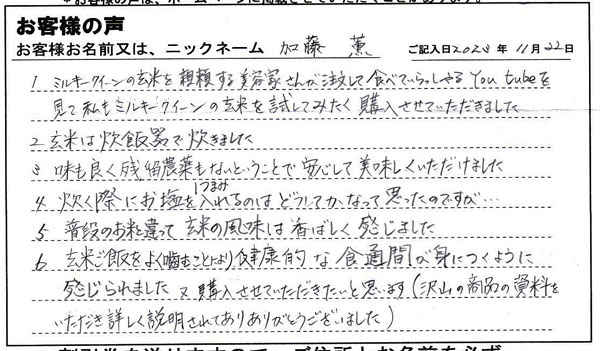 お客様の声
お客様お名前又は、ニックネーム 加藤 薫 ご記入日2023年 11月22日
1 ミルキークイーンの玄米を 頼する美容家さんが注文して食べていらっしゃるYou tubeを
見て私もミルキークイーンの玄米を試してみたく購入させていただきました
2 玄米は炊飯器で炊きました
3 味も良く残留農薬もないということで安心して美味しくいただけました
4 炊く際にお塩を1つまみ入れるのはどうしてかなって思ったのですが…
5 普段のお米と違って玄米の風味は香ばしく感じました
6 玄米ご飯をよく噛むことにより健康的な食 間が身につくように
感じられました 又購入させていただきたいと思います(沢山の商品の資料を
いただき詳しく説明されてありありがとうございました)